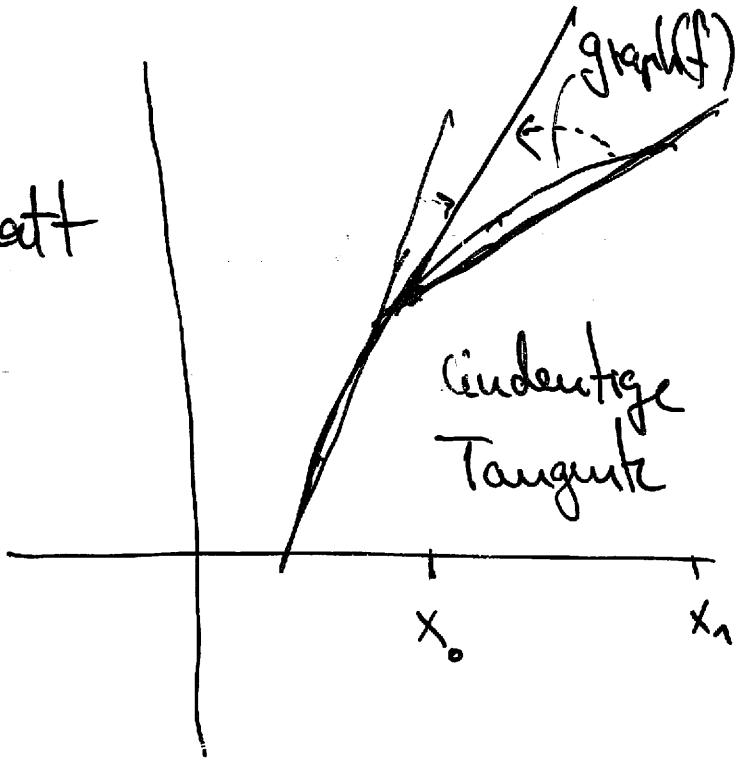 graph(f)
att
eindeutige
Tangente
x₀
x₁